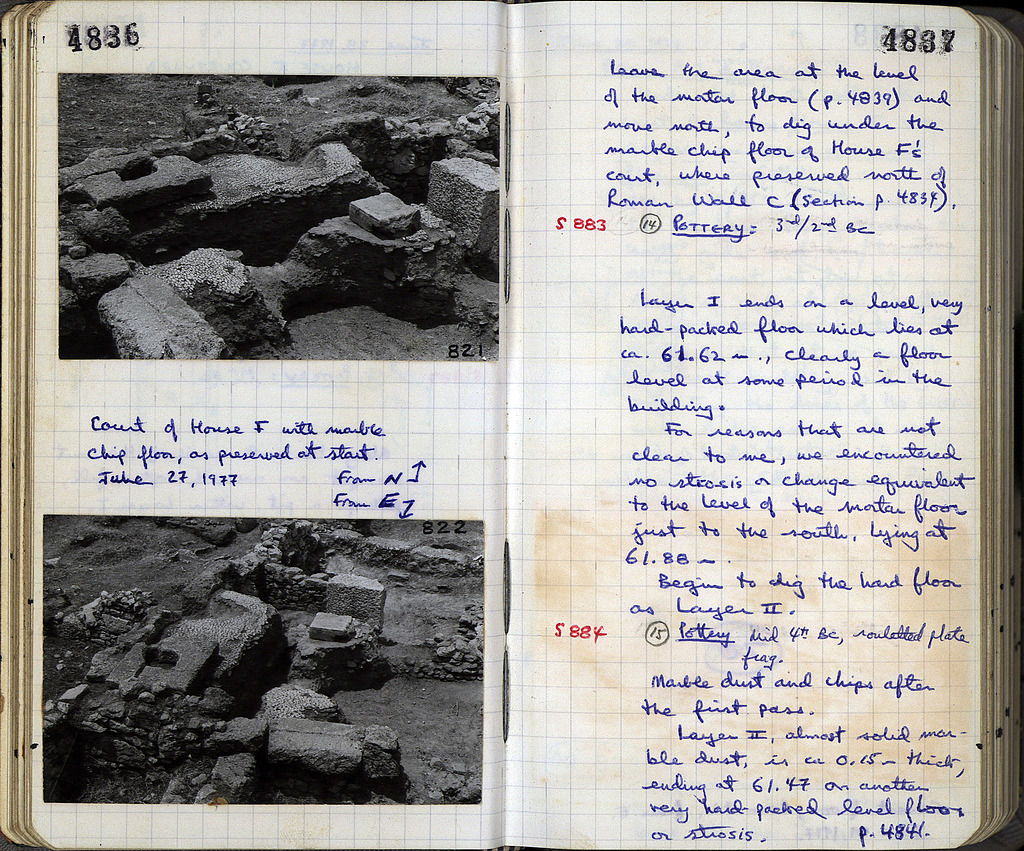 4836
821
Court of House F with marble
chip floor, as preserved at start.
June 27, 1977 From N ↑
From E ↓
822
4837
Leave the area at the level
of the mortar floor (p. 4839) and
move north, to dig under the
marble chip floor of House F's
court, where preserved north of
Roman Wall C (section p. 4834).
S 883 14 POTTERY: 3rd/2nd BC
Layer I ends on a level, very
hard-packed floor which lies at
ca. 61.62 m., clearly a floor
level at some period in the
building.
For reasons that are not
clear to me, we encountered
no strosis or change equivalent
to the level of the mortar floor
just to the south, lying at
61.88 m.
Begin to dig the hard floor
as Layer II.
S 884 15 Pottery Mid 4th BC, rouletted plate
frag.
Marble dust and chips after
the first pass.
Layer II, almost solid mar-
ble dust, is ca 0.15 m thick,
ending at 61.47 on another
very hard packed level floor
or strosis. p. 4841.